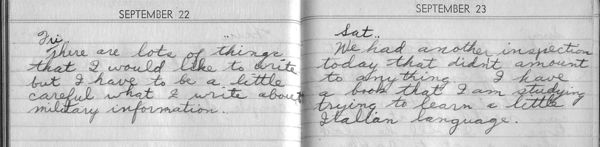 SEPTEMBER 22
Fri.
There are lots of things
that I would like to write
but I have to be a little
careful what I write about
military information..
SEPTEMBER 23
Sat..
We had another inspection
today that didn't amount
to anything. I have
a book that I am studying
trying to learn a little
Italian language.